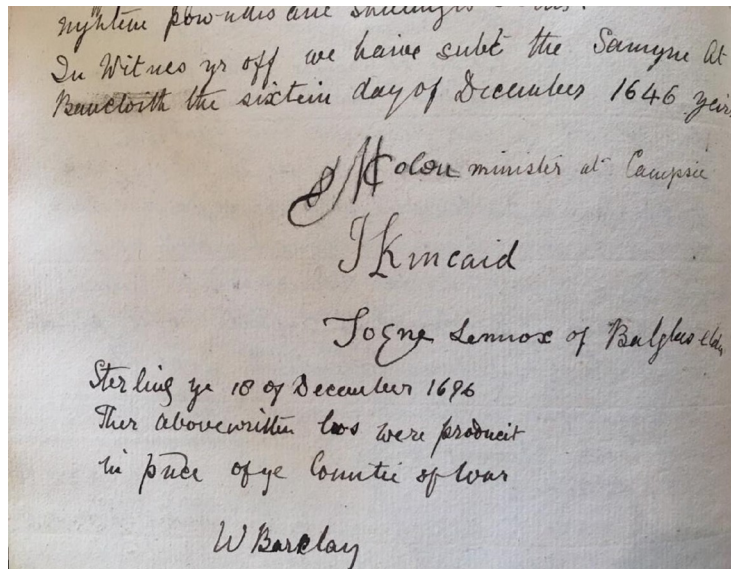 nyntein pownds and shillings
In Witnes yr off we haive subt the Samyne At
Bancloith the sixtein day of December 1646 yeirs
J Mcolou minister at Campsie
J Kincaid
Johne Lennox of Balglas elder
Sterling ye 18 of December 1696
Ther abovewritten loss were producit
in pnce of ye Comttie of War
W Barclay